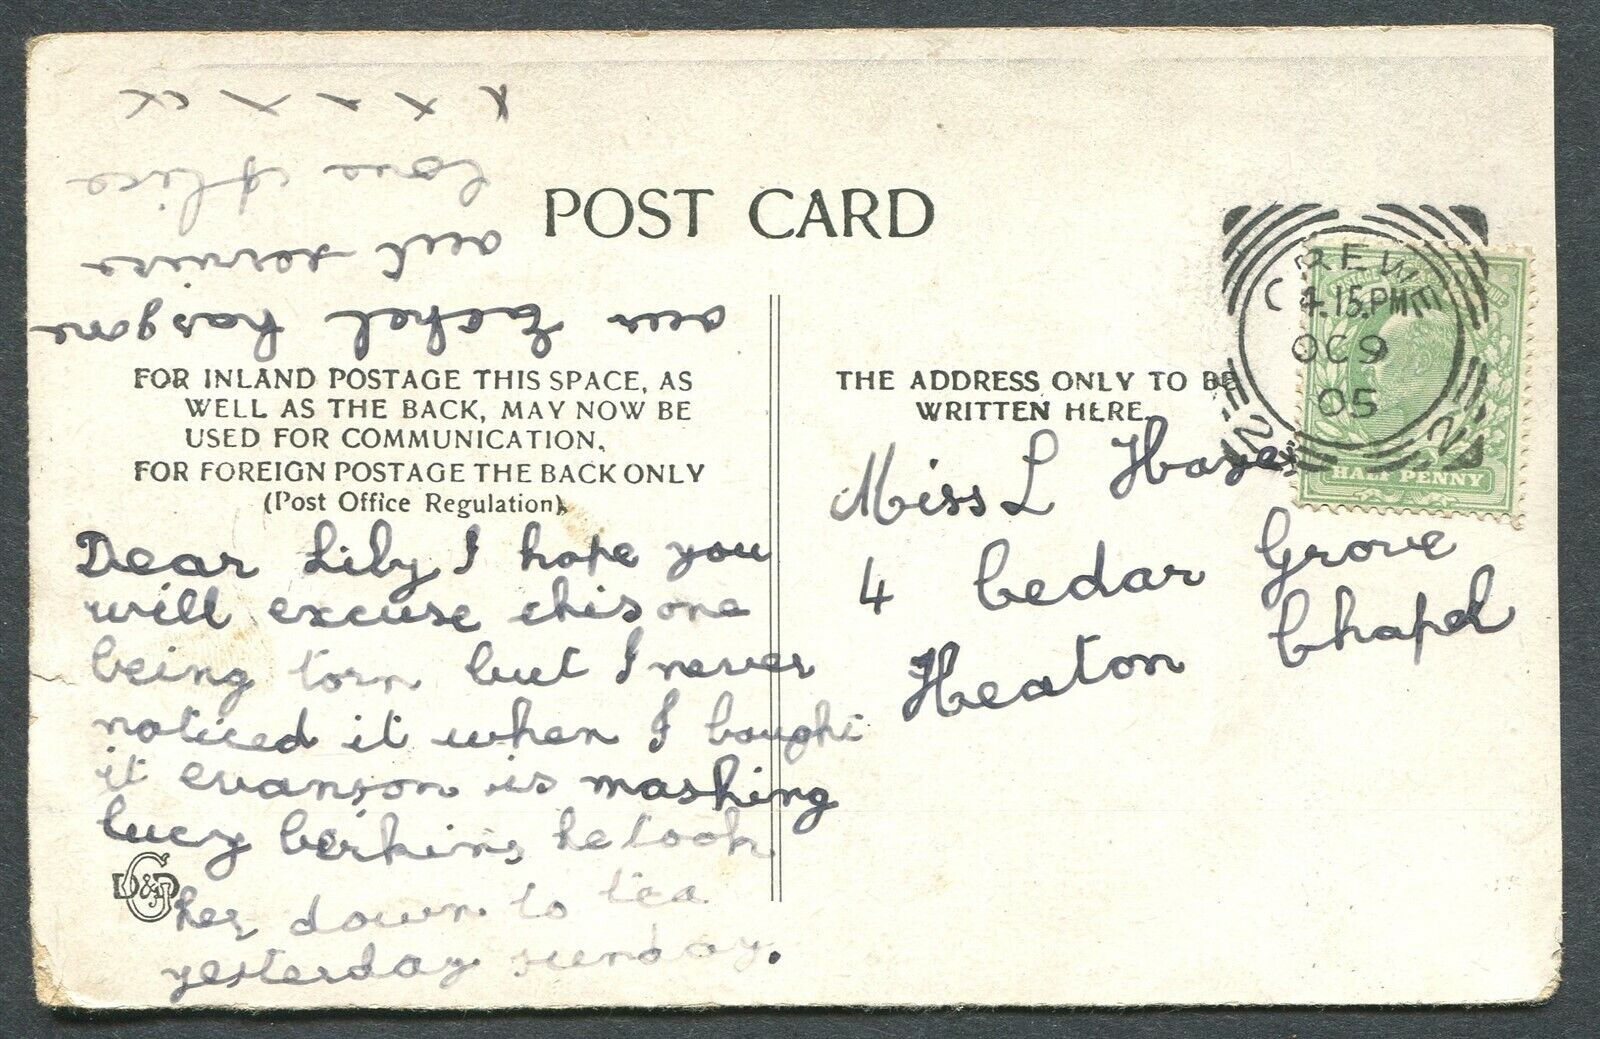 POST CARD
FOR INLAND POSTAGE THIS SPACE, AS
WELL AS THE BACK, MAY NOW BE
USED FOR COMMUNICATION.
FOR FOREIGN POSTAGE THE BACK ONLY
(Post Office Regulation).
THE ADDRESS ONLY TO BE
WRITTEN HERE.
CREWE
4.15.PM
OC 9
05
HALF PENNY
Miss L Hayes
4 Cedar Grove
Heaton Chapel
Dear Lily I hope you
will excuse this one
being torn but I never
noticed it when I bought
it evanson is mashing
lucy he took
her down to tea
yesterday sunday.
our Ethel has gone
out
love Alice
x x x x x
D&G